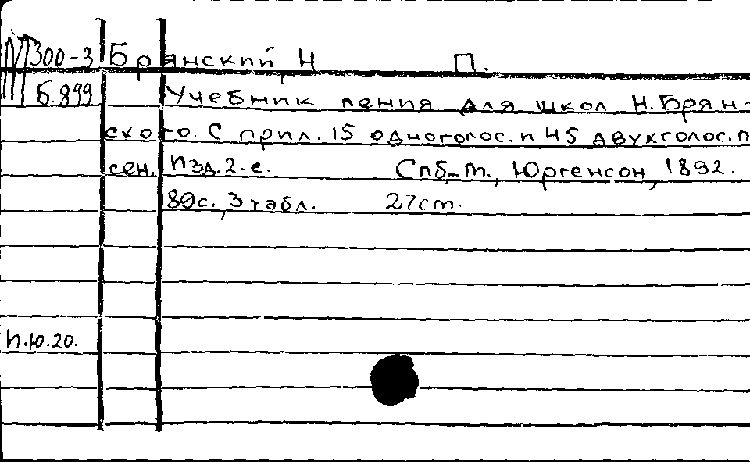 М300-3 Брянский, Н П.
Б.899 Учебник пения для школ Н.Брян-
ского. С прил. 15 одноголос. и 45 двухголос.п
сен. Изд.2-е. Спб.-М., Юргенсон, 1892.
80с., 3 табл. 27см.
п.ю.20.